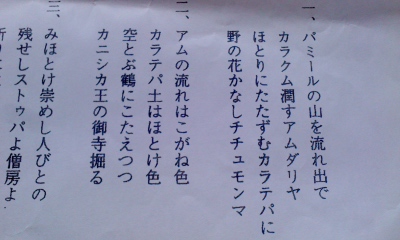 一、パミールの山を流れ出で
カラクム潤すアムダリヤ
ほとりにたたずむカラテパに
野の花かなしチチュモンマ
二、アムの流れはこがね色
カラテパ土はほとけ色
空とぶ鶴にこたえつつ
カニシカ王の御寺掘る
三、みほとけ崇めし人びとの
残せしストゥパよ僧房よ